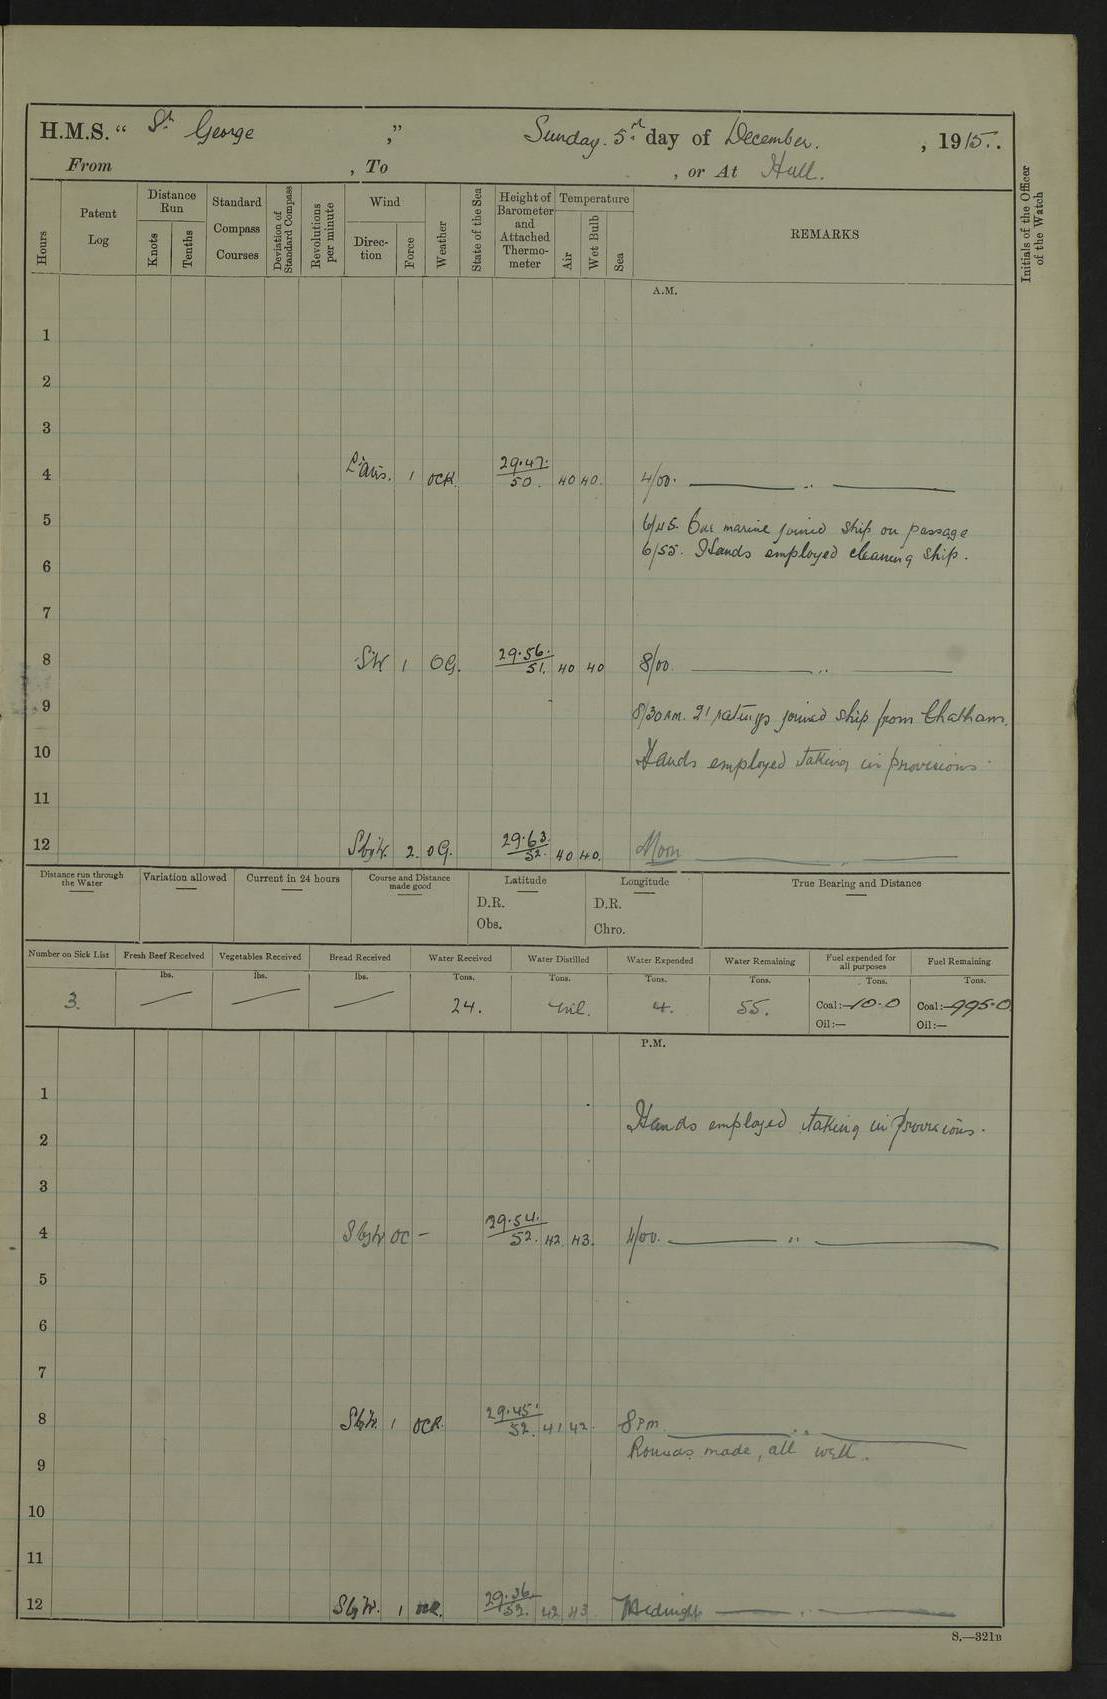 H.M.S. “ St George ,” Sunday. 5 day of December. , 1915.
From , To , or At Hull.
Hours
Patent Log
Distance Run
Knots
Tenths
Standard Compass Courses
Deviation of Standard Compass
Revolutions per minute
Wind
Direc-tion
Force
Weather
State of the Sea
Height of Barometer and Attached Thermo-meter
Temperature
Air
Wet Bulb
Sea
REMARKS
Initials of the Officer of the Watch
A.M.
1
2
3
4 1 OCR. 29.47. 50. 40 40. 4/00. ——— „ ———
5 6/45. One marine joined ship on passage
6/55. Hands employed cleaning ship.
6
7
8 SW 1 OG. 29.56. 51. 40 40 8/00. ——— „ ———
9 8/30 AM. 21 ratings joined ship from Chatham.
10 Hands employed taking in provisions.
11
12 SbyW. 2. OG. 29.63. 52. 40 40. Noon ——— „ ———
Distance run through the Water —
Variation allowed —
Current in 24 hours —
Course and Distance made good —
Latitude
D.R.
Obs.
Longitude
D.R.
Chro.
True Bearing and Distance —
Number on Sick List 3.
Fresh Beef Received lbs. —
Vegetables Received lbs. —
Bread Received lbs. —
Water Received Tons. 24.
Water Distilled Tons. nil.
Water Expended Tons. 4.
Water Remaining Tons. 55.
Fuel expended for all purposes Tons. Coal:— 10.0
Oil:—
Fuel Remaining Tons. Coal:— 995.0
Oil:—
P.M.
1
Hands employed taking in provisions.
2
3
4 SbyW OC – 29.54. 52. 42 43. 4/00. ——— „ ———
5
6
7
8 SbyW. 1 OCR. 29.45. 52. 41 42. 8 PM. ——— „ ———
Rounds made, all well.
9
10
11
12 SbyW. 1 OCR. 29.36. 52. 42 43 Midnight ——— „ ———
S.—321B